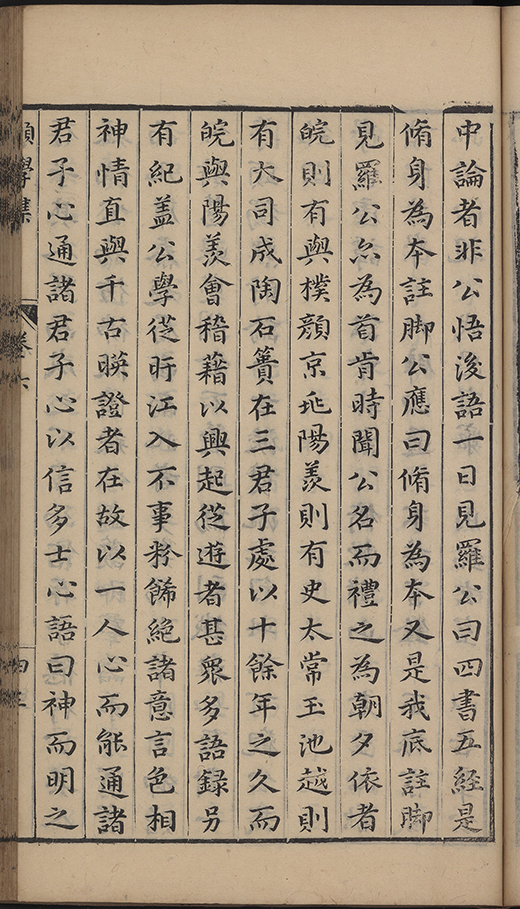 中論者非公悟後語一日見羅公曰四書五經是
脩身為本註脚公應曰脩身為本又是我底註脚
見羅公亦為首肯時聞公名而禮之為朝夕依者
皖則有與樸顏京兆陽羨則有史太常玉池越則
有大司成陶石簣在三君子處以十餘年之久而
皖與陽羨會稽藉以興起從遊者甚眾多語録另
有紀盖公學從盱江入不事粉餙絕諸意言色相
神情直與千古暎證者在故以一人心而能通諸
君子心通諸君子心以信多士心語曰神而明之
學集
卷六